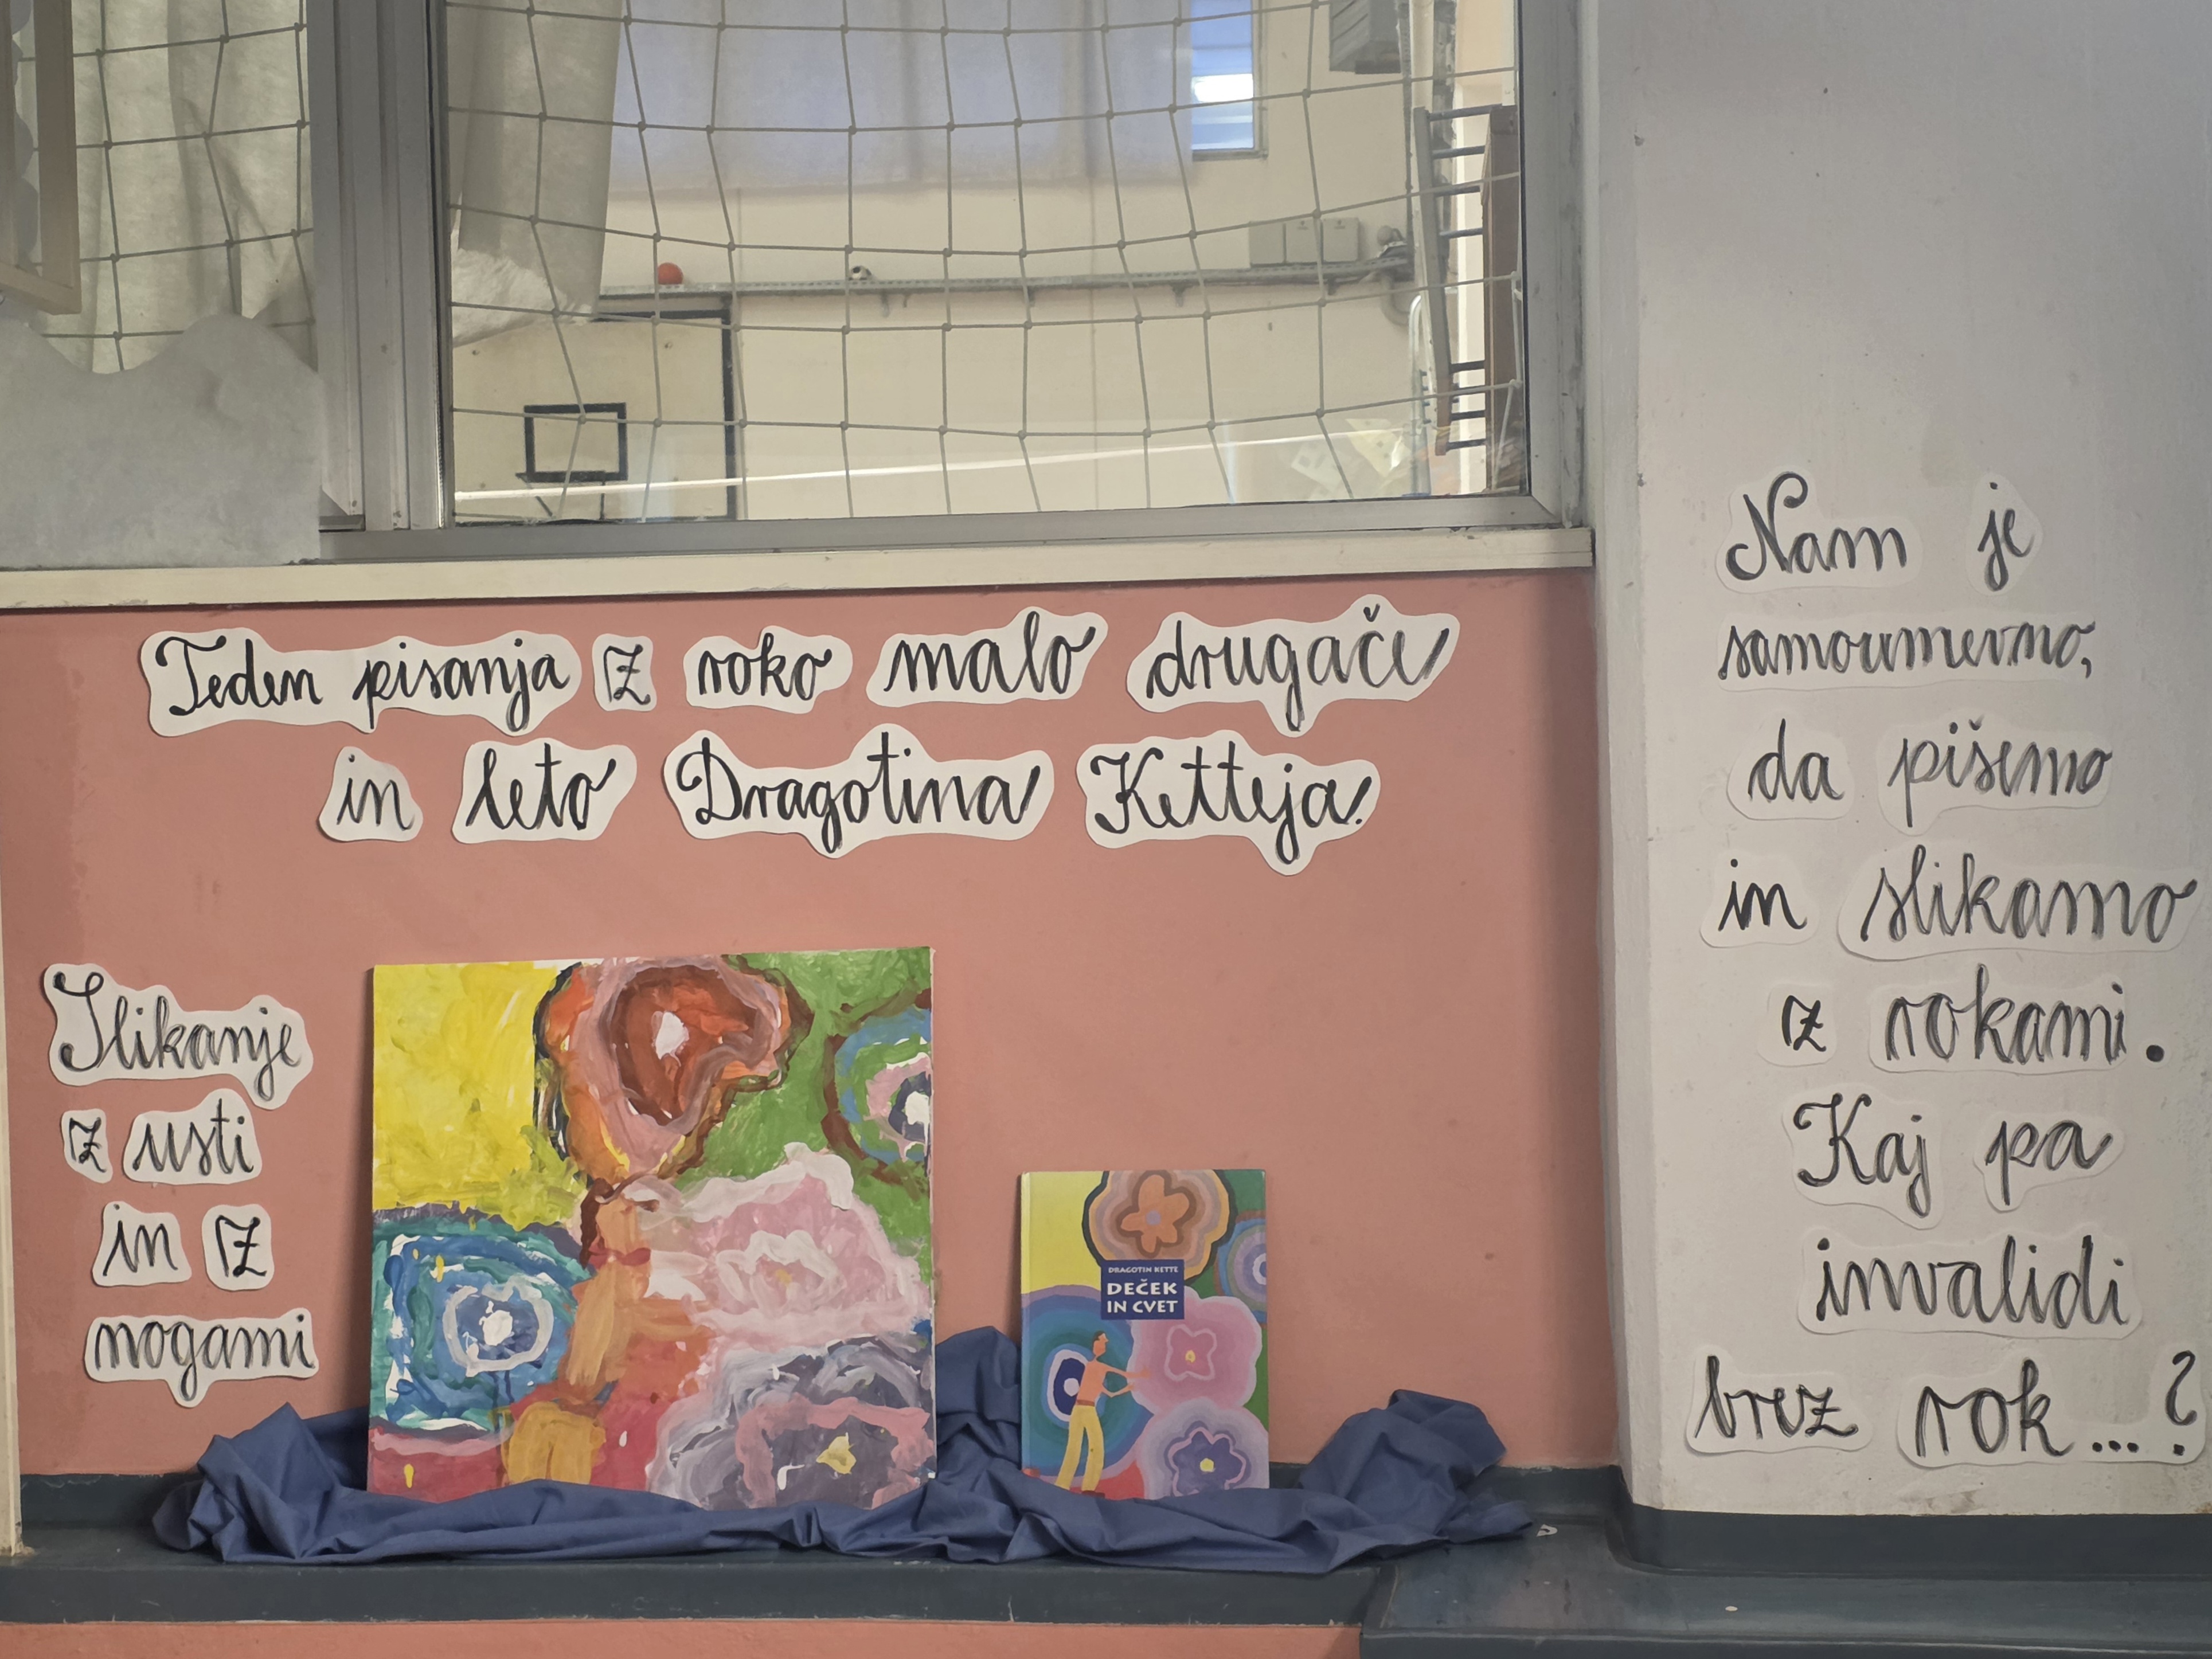 Teden pisanja z roko malo drugače
in leto Dragotina Ketteja.
Slikanje
z usti
in z
nogami
DRAGOTIN KETTE
DEČEK
IN CVET
Nam je
samoumevno,
da pišemo
in slikamo
z rokami.
Kaj pa
invalidi
brez rok...?